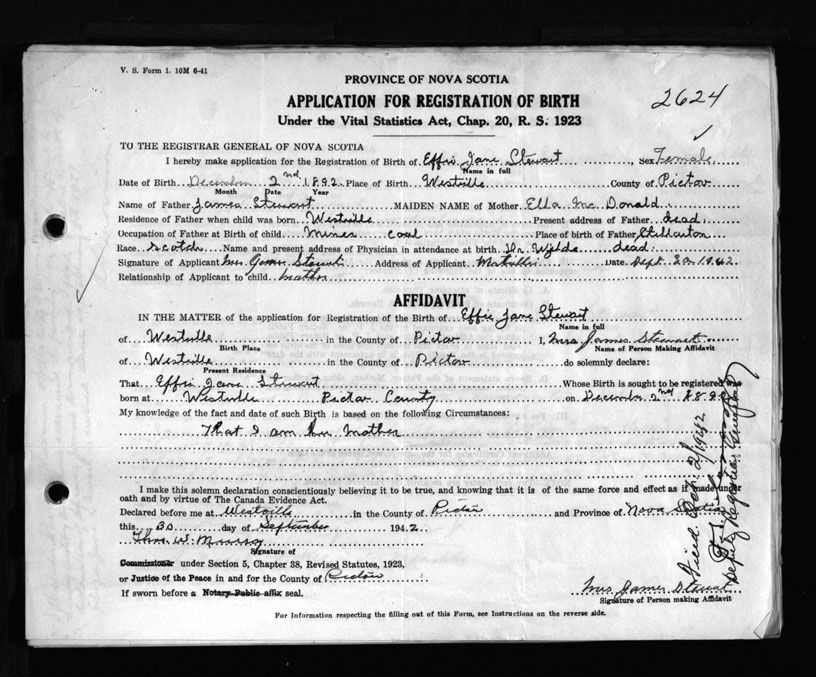 V. S. Form 1. 10M 6-41
PROVINCE OF NOVA SCOTIA
APPLICATION FOR REGISTRATION OF BIRTH
2624
Under the Vital Statistics Act, Chap. 20, R. S. 1923
TO THE REGISTRAR GENERAL OF NOVA SCOTIA
I hereby make application for the Registration of Birth of Effie Jane Stewart, Sex Female
Name in full
Date of Birth December 2nd 1892. Place of Birth Westville County of Pictou
Month Date Year
Name of Father James Stewart MAIDEN NAME of Mother Ella Mc Donald
Residence of Father when child was born Westville Present address of Father dead
Occupation of Father at Birth of child Miner coal Place of birth of Father Stellarton
Race Scotch Name and present address of Physician in attendance at birth Dr dead
Signature of Applicant Mrs James Stewart Address of Applicant Date Sept 30 1942
Relationship of Applicant to child mother
AFFIDAVIT
IN THE MATTER of the application for Registration of the Birth of Effie Jane Stewart
Name in full
of Westville in the County of Pictou I, Mrs James Stewart
Birth Place Name of Person Making Affidavit
of Westville in the County of Pictou do solemnly declare:
Present Residence
That Effie Jane Stewart Whose Birth is sought to be registered was
born at Westville Pictou County on December 2nd 1892
My knowledge of the fact and date of such Birth is based on the following Circumstances:
That I am her mother
I make this solemn declaration conscientiously believing it to be true, and knowing that it is of the same force and effect as if made under
oath and by virtue of The Canada Evidence Act.
Declared before me at Westville in the County of Pictou and Province of Nova Scotia
this 30 day of September 1942
Thos. W. Murray
Signature of
Commissioner under Section 5, Chapter 38, Revised Statutes, 1923,
or Justice of the Peace in and for the County of Pictou
If sworn before a Notary Public affix seal.
Mrs James Stewart
Signature of Person making Affidavit
For Information respecting the filling out of this Form, see Instructions on the reverse side.
Filed Oct 2/1942
Deputy Registrar General